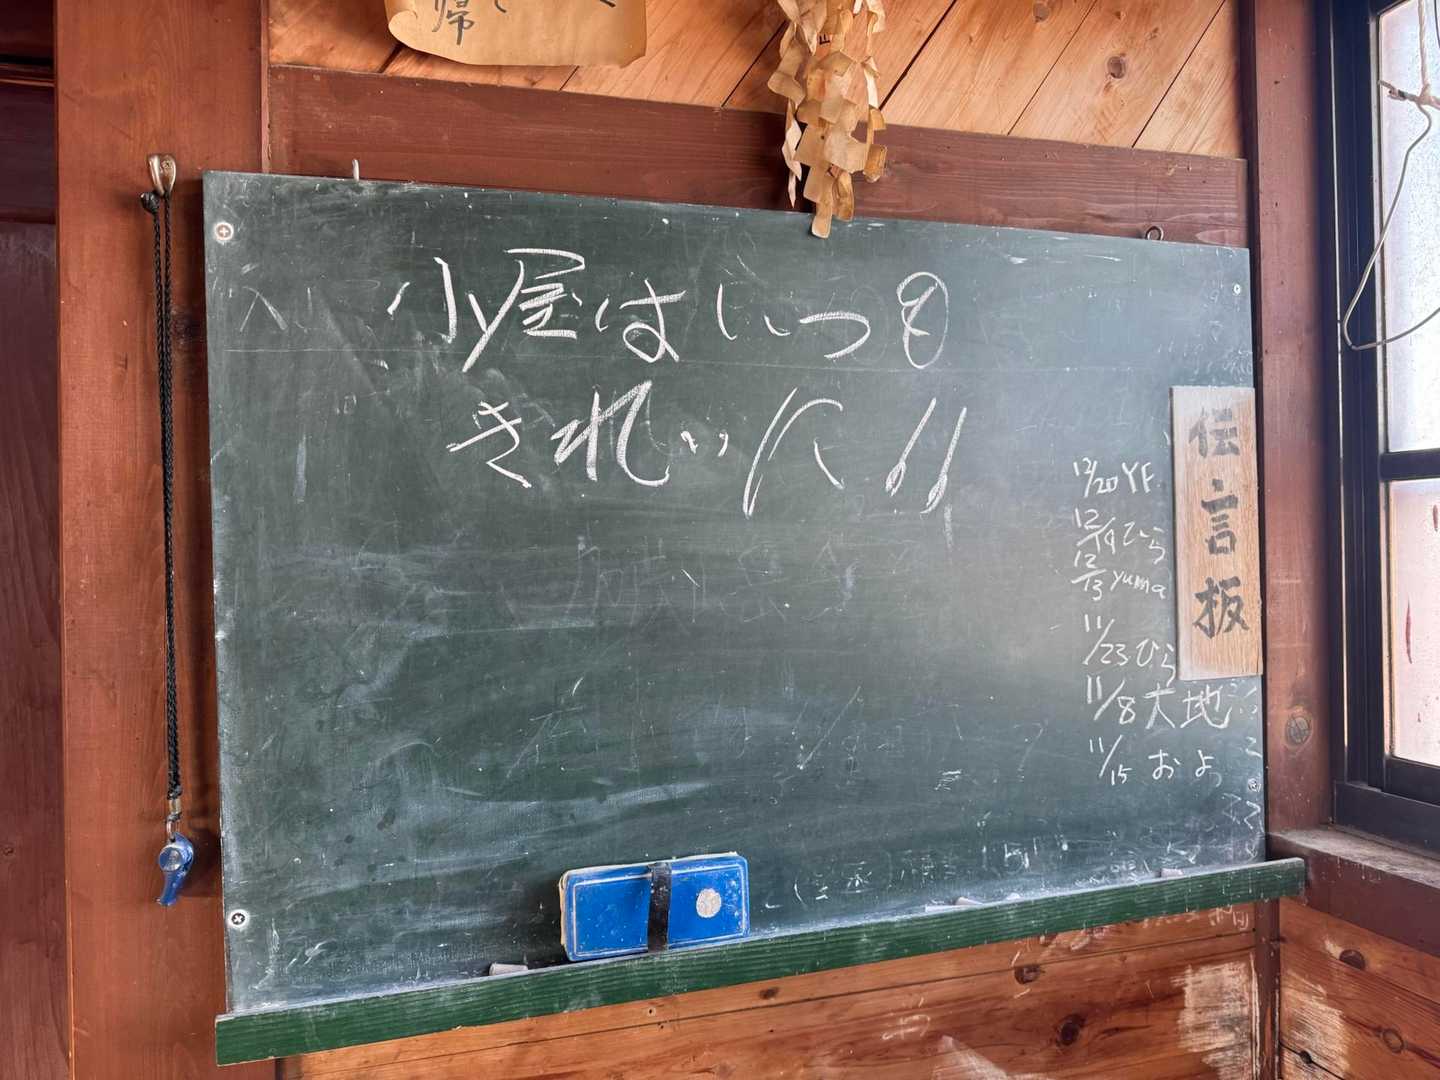 帰
小屋はいつも
きれいに!!
伝言板
12/20 YF
12/19 ひら
12/13 yuma
11/23 ひら
11/8 大地
11/15 およ